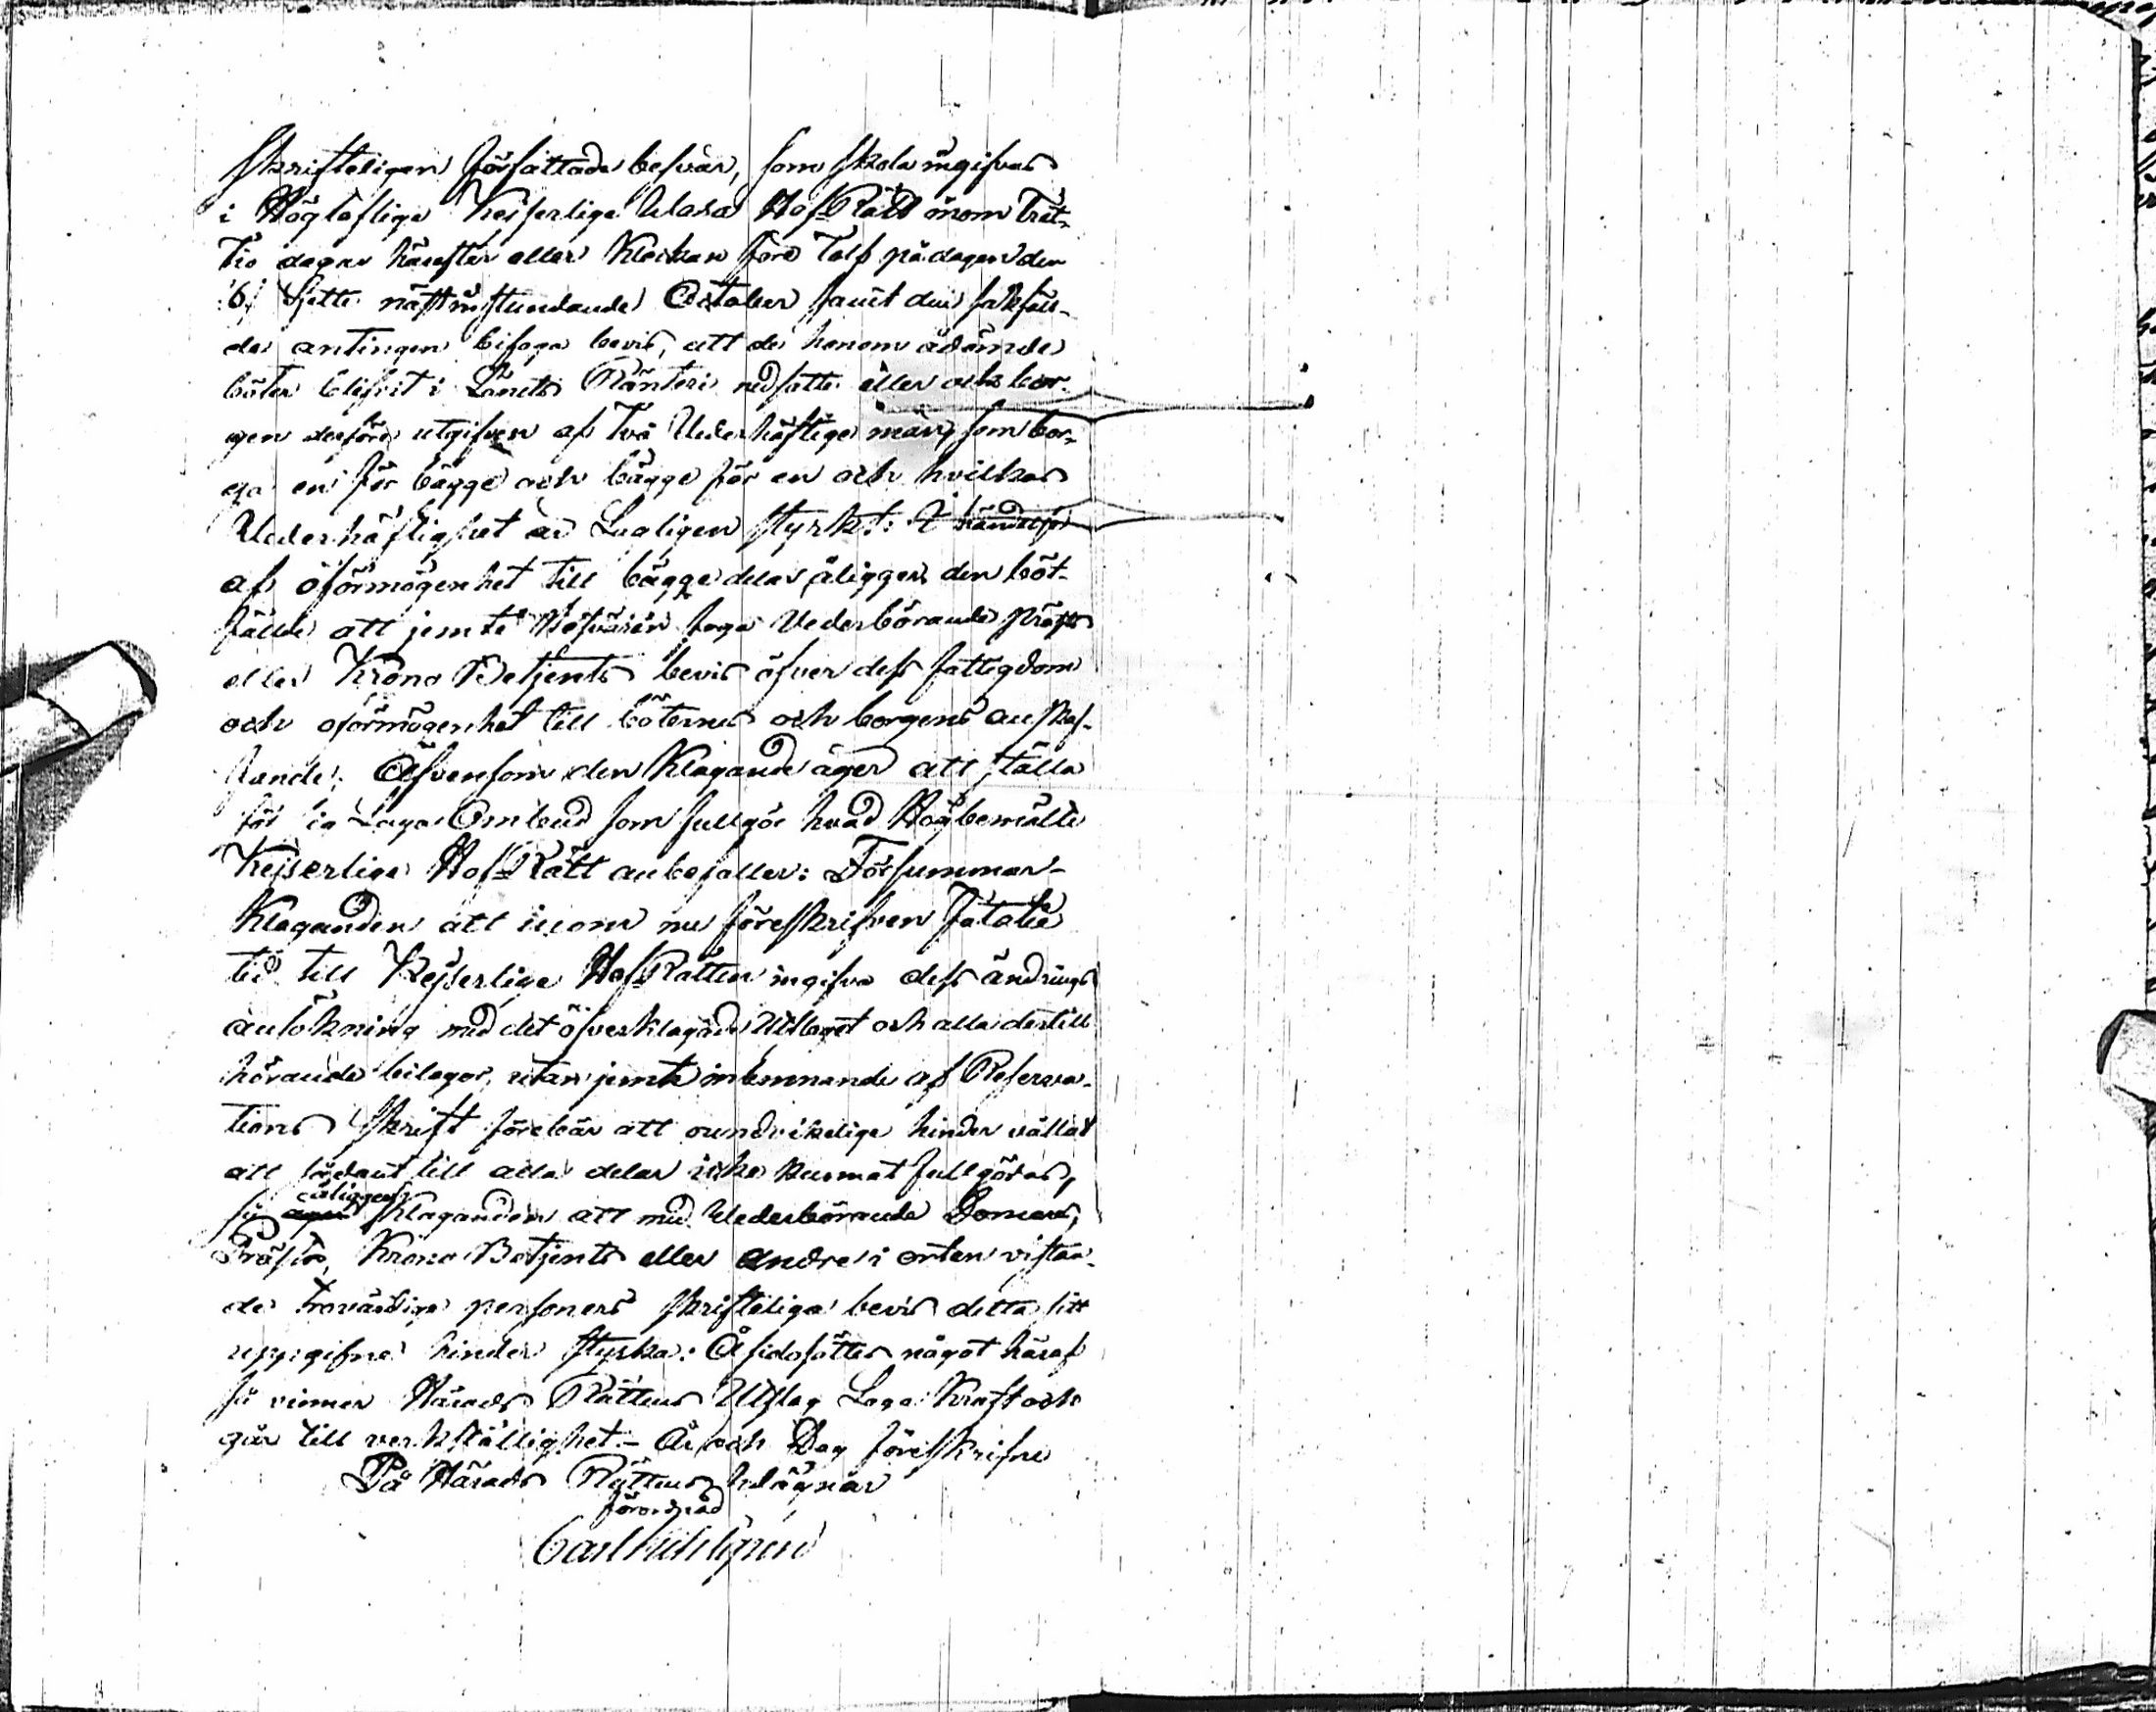 skrifteligen författade besvär, som skola ingifvas
i Höglöflige Kejserlige Wasa HofRätt inom Tret-
tio dagar härefter eller Klockan före Tolf på dagen den
6 Sjette nästinstundande October samt den sakfäll-
de antingen bifoga bevis, att de honom ådömde
böter blifvit i Länets Ränteri nedsatte eller ock bor-
gen derföre utgifven af Två Wederhäftige män, som bor-
ga en för bägge och bägge för en och hvilkas
Wederhäftighet är Lagligen styrkt: I händelse
af oförmögenhet till bägge delar åligger den böt-
fällde att jemte Besvären foga Wederbörande Präst
eller Krono Betjents bevis öfver dess fattigdom
och oförmögenhet till böternes och borgens anskaf-
fande; Äfvensom den Klagande äger att ställa
för sig Laga Ombud som fullgör hvad Högbemälte
Kejserlige HofRätt anbefaller: Försummar
Klaganden att inom nu föreskrifven Fatalie
tid till Kejserlige HofRätten ingifva dess ändrings
ansökning med det öfverklagade Utslaget och alla dertill
hörande bilagor, utan jemte inlemnande af Reserva-
tions skrift förebär att oundvikelige hinder vållat
att sådant till alla delar icke kunnat fullgöras,
åligger
så Klaganden att med Wederbörande Domares,
Prästs, Krono Betjents eller andre i orten vistan-
de trovärdige personers skrifteliga bevis detta sitt
uppgifne hinder styrka: Åsidosättes något häraf
så vinner Härads Rättens Utslag Laga Kraft och
går till verkställighet.- År och Dag föreskrifne
På Härads Rättens Wägnar
förordnad
Carl